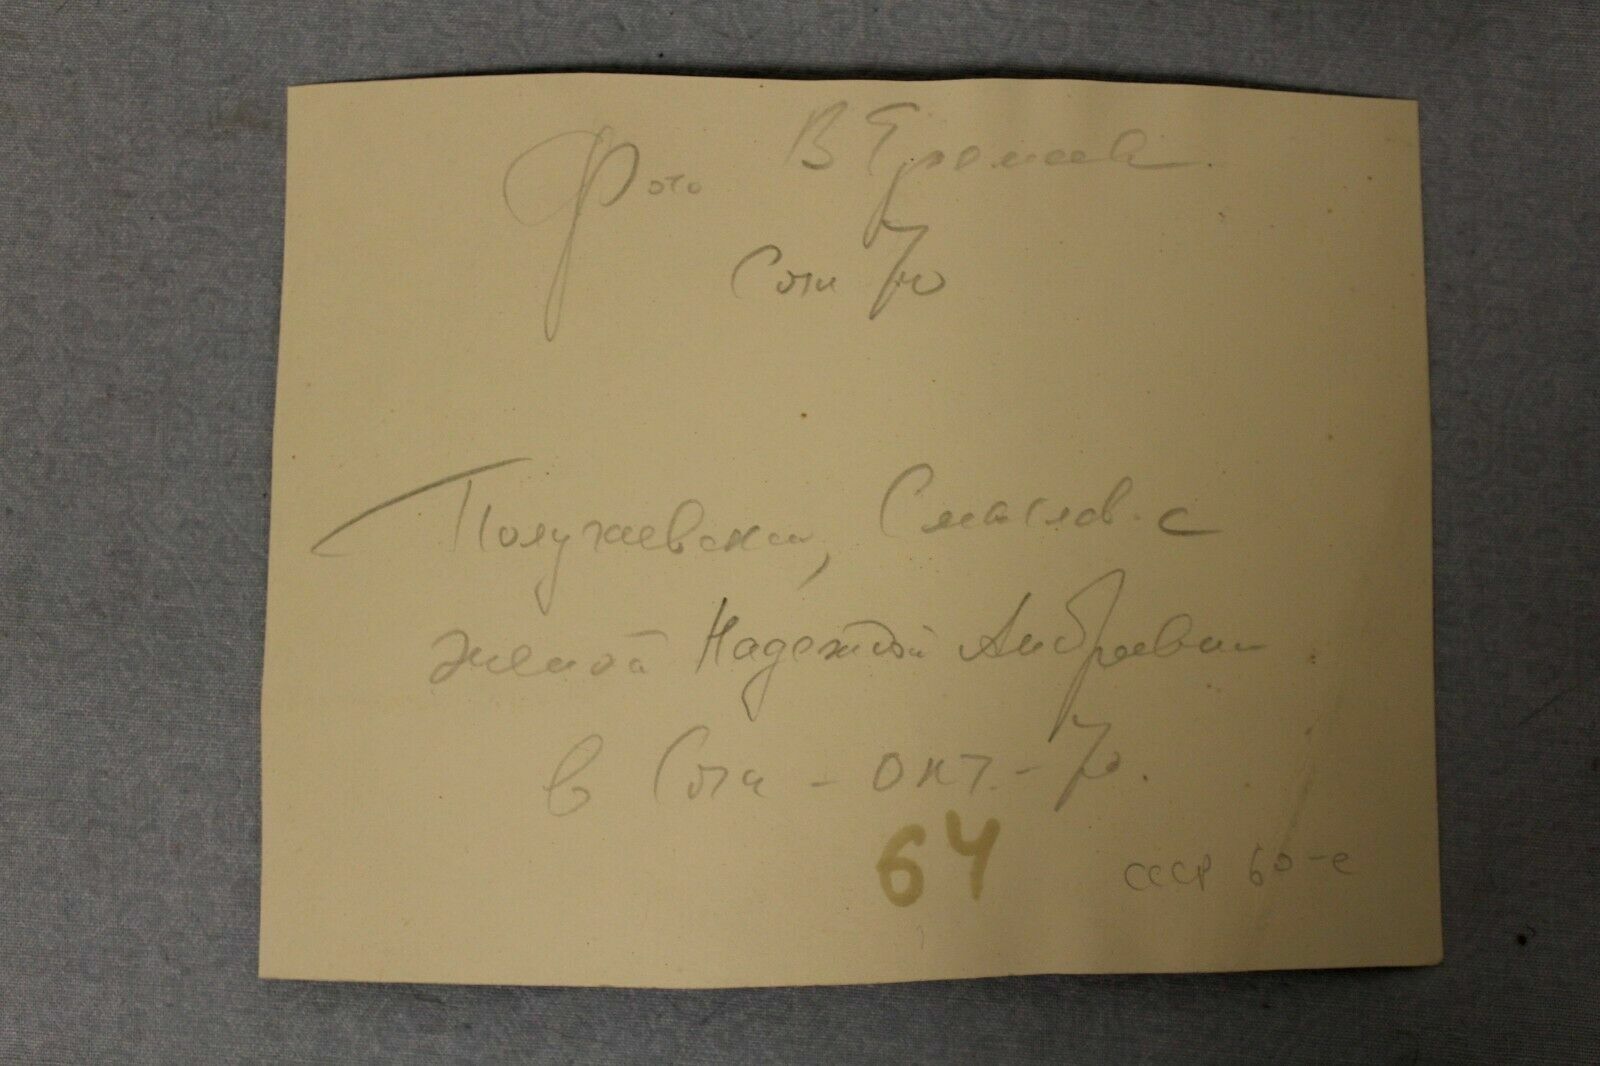 Фото В Еромеев
Сочи 70
Полугаевский, Смыслов с
женой Надеждой Андреевной
в Сочи - окт. - 70.
64
СССР 60-е